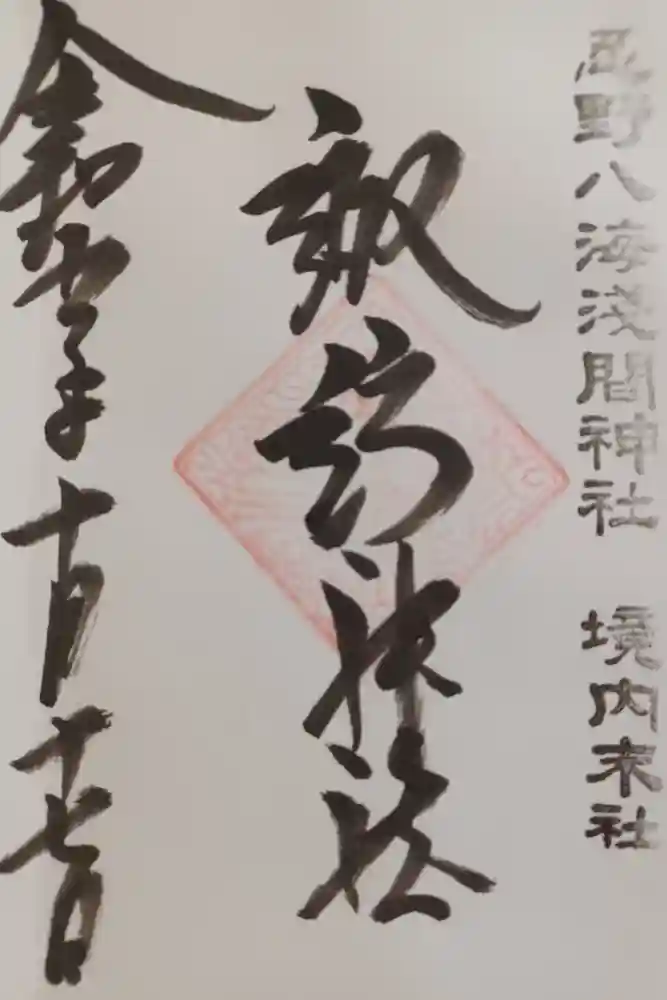 忍野八海淺間神社 境内末社
諏訪神社
令和五年十月十七日